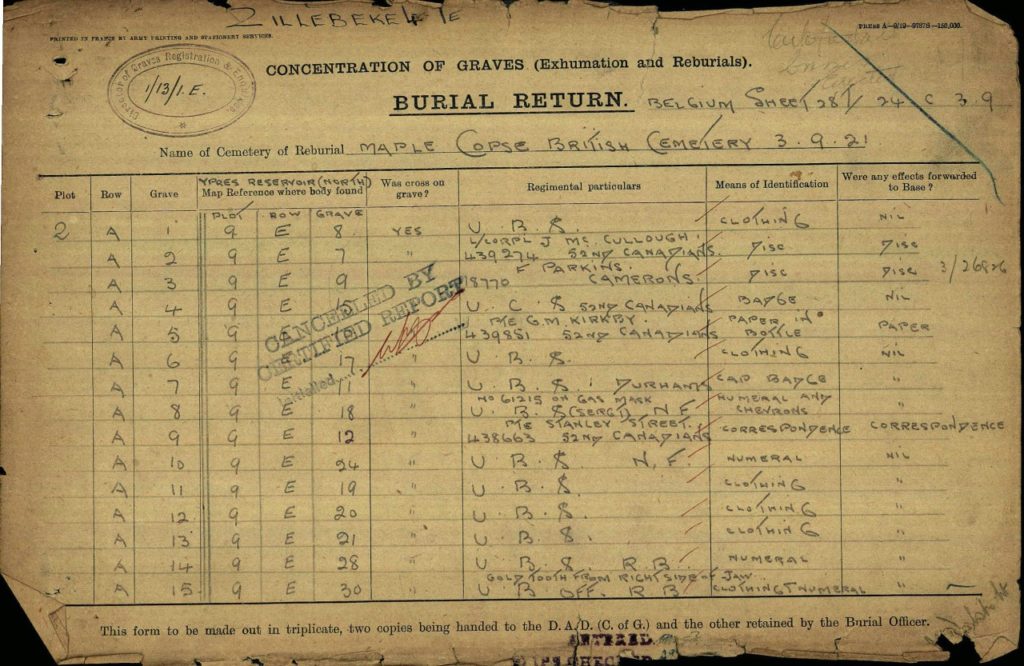 ZILLEBEKE
PRINTED IN FRANCE BY ARMY PRINTING AND STATIONERY SERVICES.
PRESS A—9/19—9787S—150,000.
Director of Graves Registration & Enquiries
1/13/1.E.
CONCENTRATION OF GRAVES (Exhumation and Reburials).
BURIAL RETURN. BELGIUM SHEET 28 I/ 24 C 3 9
Name of Cemetery of Reburial MAPLE COPSE BRITISH CEMETERY 3.9.21
Plot Row Grave YPRES RESERVOIR (NORTH) Map Reference where body found Was cross on grave? Regimental particulars Means of Identification Were any effects forwarded to Base?
PLOT ROW GRAVE
2 A 1 9 E 8 YES U.B.S. CLOTHING NIL
L/CORPL J MC CULLOUGH
A 2 9 E 7 " 439274 52ND CANADIANS. DISC DISC
F PARKINS.
A 3 9 E 9 8770 CAMERONS. DISC DISC
A 4 9 E 15 U.C.S 52ND CANADIANS BADGE NIL
PTE G.M. KIRKBY. PAPER IN
A 5 9 439851 52ND CANADIANS BOTTLE PAPER
A 6 9 17 " U.B.S. CLOTHING NIL
A 7 9 E 11 " U.B.S. DURHAMS CAP BADGE "
NO 61215 ON GAS MASK NUMERAL AND
A 8 9 E 18 " U.B.S (SERGT) N F CHEVRONS "
PTE STANLEY STREET.
A 9 9 E 12 " 438663 52ND CANADIANS CORRESPONDENCE CORRESPONDENCE
A 10 9 E 24 " U.B.S. N.F. NUMERAL NIL
A 11 9 E 19 " U.B.S. CLOTHING "
A 12 9 E 20 " U.B.S. CLOTHING "
A 13 9 E 21 " U.B.S. CLOTHING "
A 14 9 E 28 " U.B.S R.B. NUMERAL "
GOLD TOOTH FROM RIGHT SIDE OF JAW
A 15 9 E 30 " U B OFF. R B CLOTHING & NUMERAL "
CANCELLED BY
CERTIFIED REPORT
Initialled
This form to be made out in triplicate, two copies being handed to the D.A/D. (C. of G.) and the other retained by the Burial Officer.
ENTERED